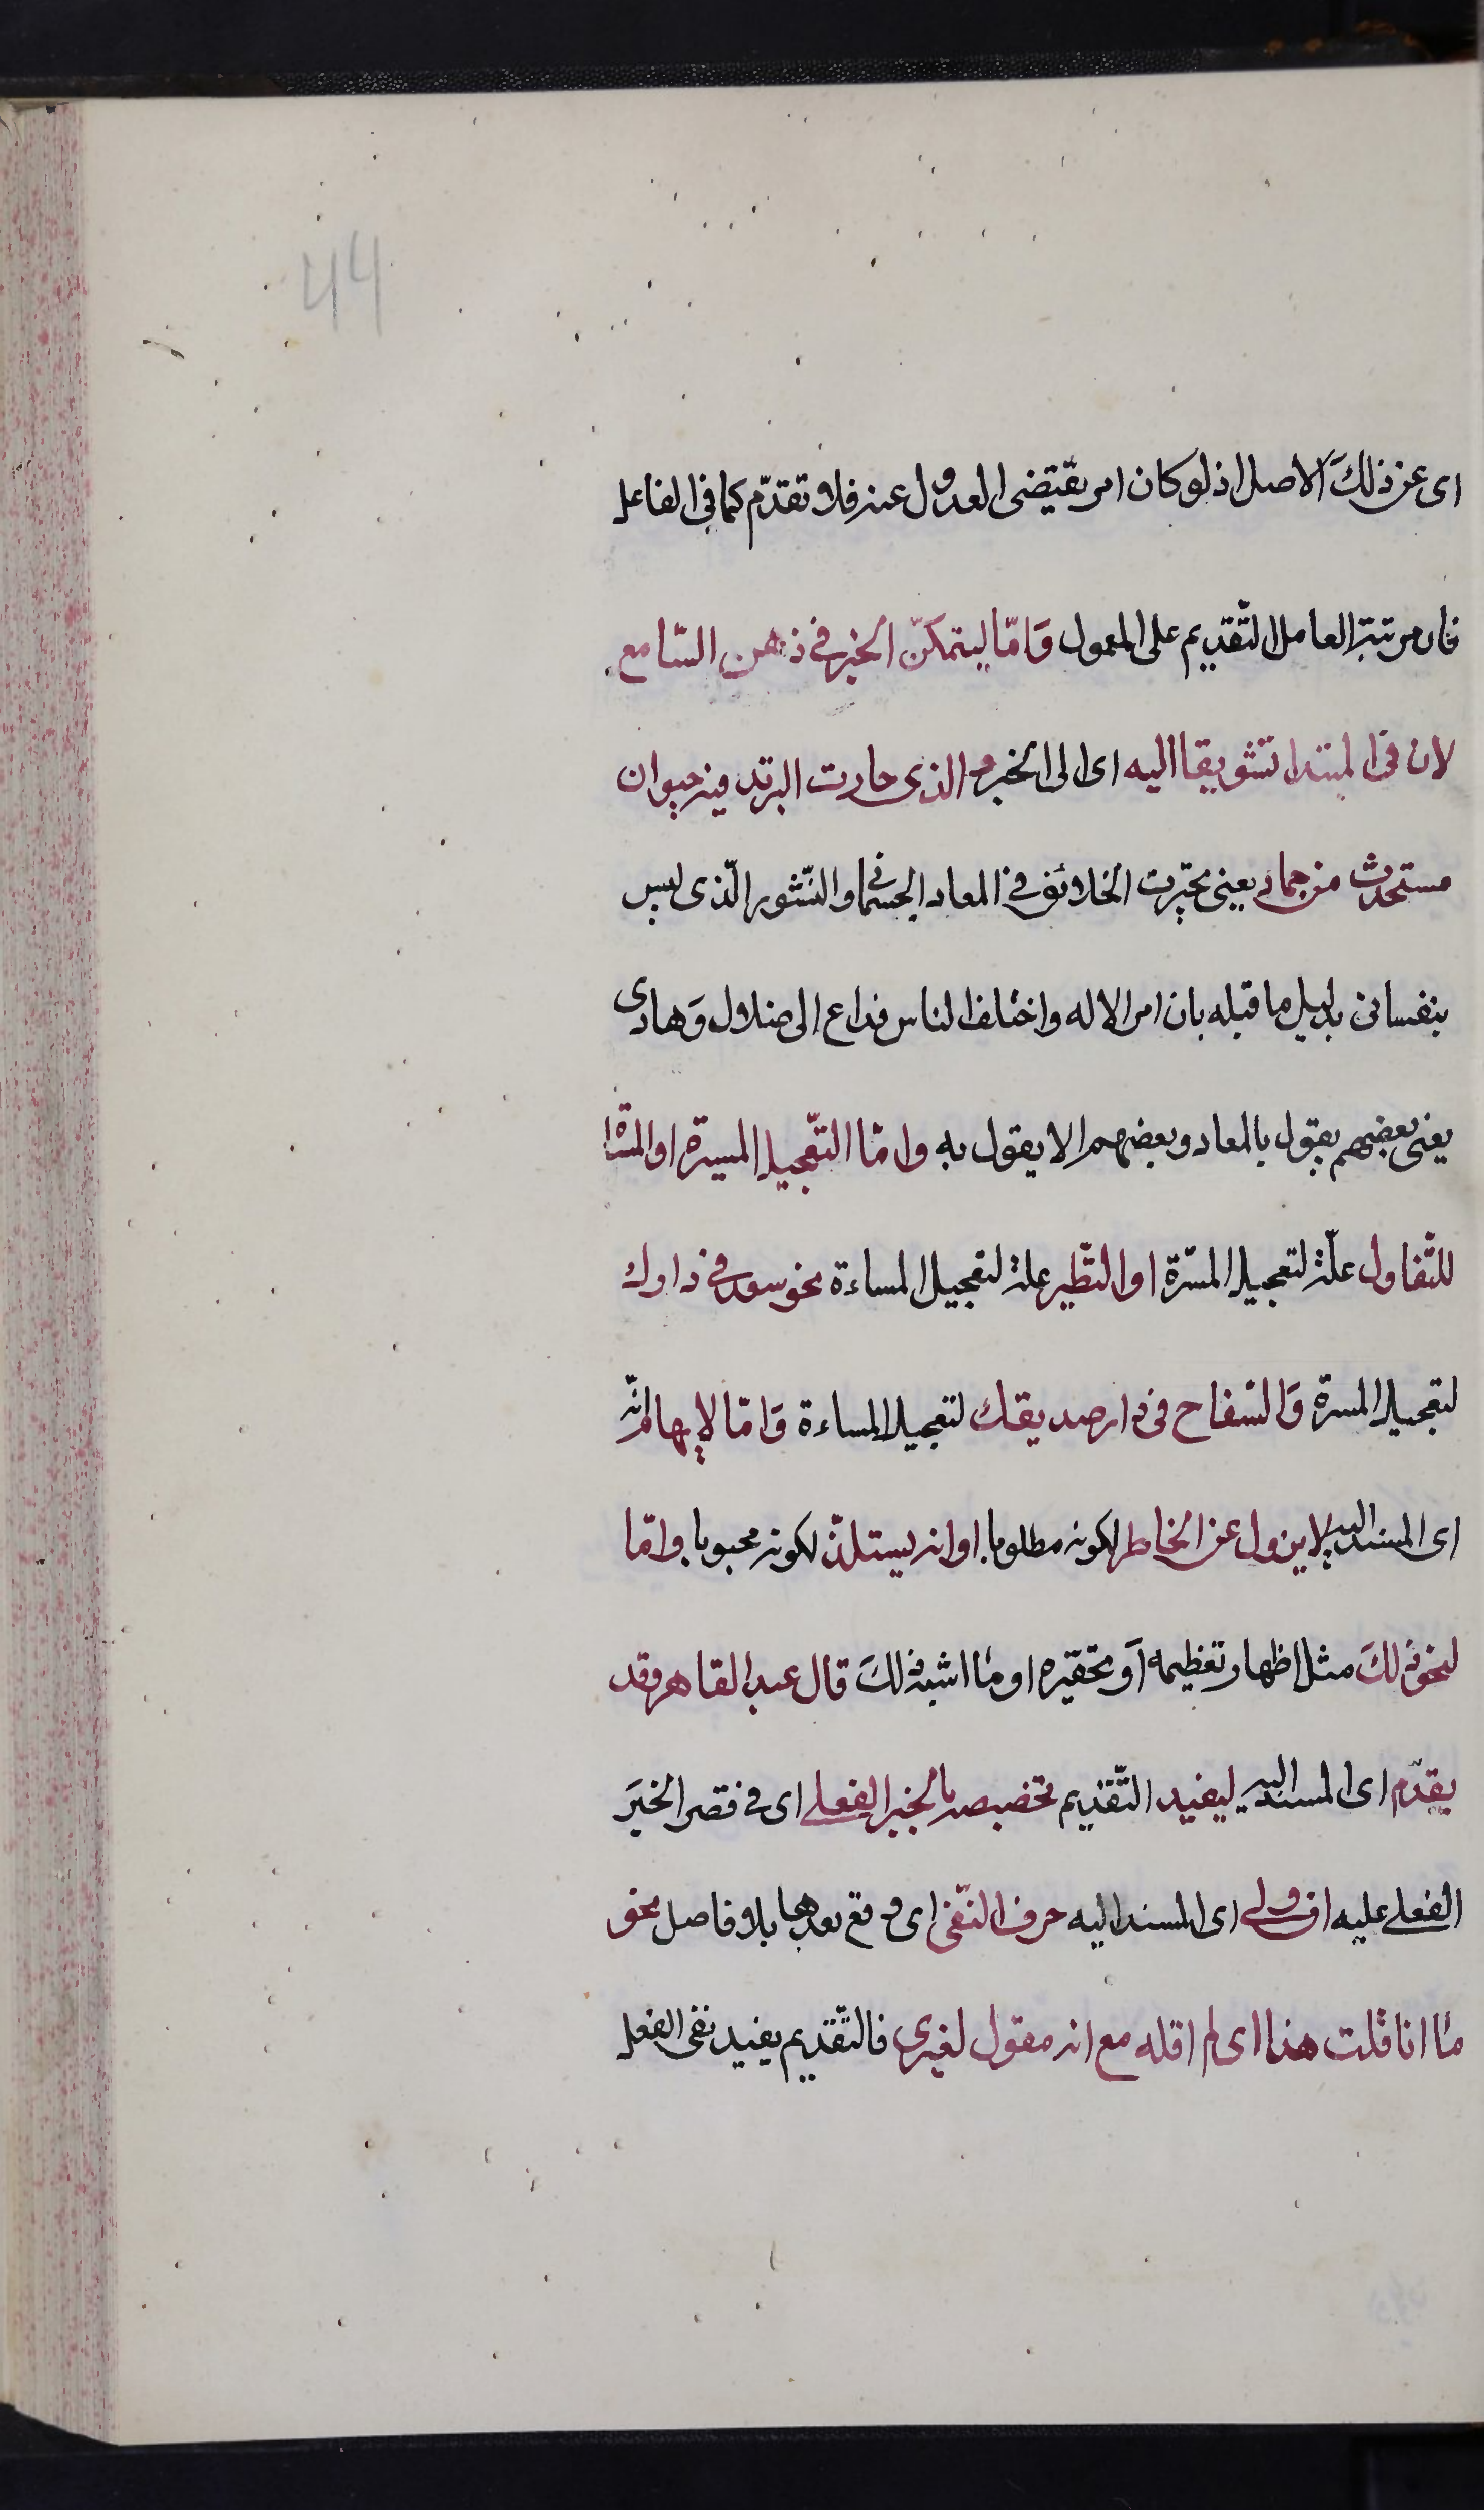 44
اى عن ذلكَ الاصل اذ لو كان امر يقتضى العدول عنه فلا تقدّم كما فى الفاعل
فان مرتبة العامل التّقديم على المعمول وَامّا ليتمكنّ الخبر فى ذهن السّامع
لان فى المبتدا تشويقا اليه اى الى الخبر والذى حارت البرتد فيه حيوان
مستحدث من جماد يعنى تحيرت الخلائق فى المعاد الجسمانى والنّشور الّذى ليس
بنفسانى بدليل ما قبله بان امر الاله واختلف الناس فداع الى ضلال وَهادى
يعنى بعضهم يقول بالمعاد وبعضهم الا يقول به وامّا التّعجيل المسرة او المشا
للتّفاول علّة لتعجيل المسّرة او التّطير علة لتعجيل المساءة نحو سعد فى دارك
لتعجيل المسرة وَالسّفاح فى دار صديقك لتعجيل المساءة وَامّا لايهام انّه
اى المسند اليه لا يزول عن الخاطر لكونه مطلوبا او انه يستلذّ لكونه محبوبا وامّا
لنحو ذلكَ مثل اظهار تعظيمه اَو تحقيره او ما اشبه ذلكَ قال عبد القاهر وقد
يقدّم اى المسند اليه ليفيد التّقديم تخصيصه بالخبر الفعلى اى فى قصر الخبَر
الفعلى عليه ان ولى اى المسند اليه حرف النّفى اى وقع بعدها بلا فاصل نحو
ما انا قلت هذا اى لم اقله مع انه مقول لغيرى فالتّقديم يفيد نفى الفعل